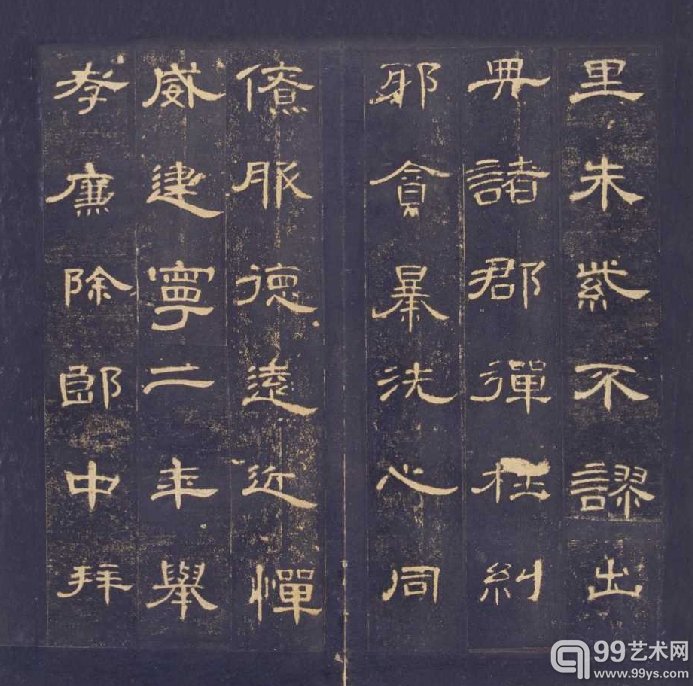 里朱紫不謬出
毌諸郡彈枉糾
邪貪暴洗心同
僚服德遠近憚
威建寧二年舉
孝廉除郎中拜
99艺术网
www.99ys.com